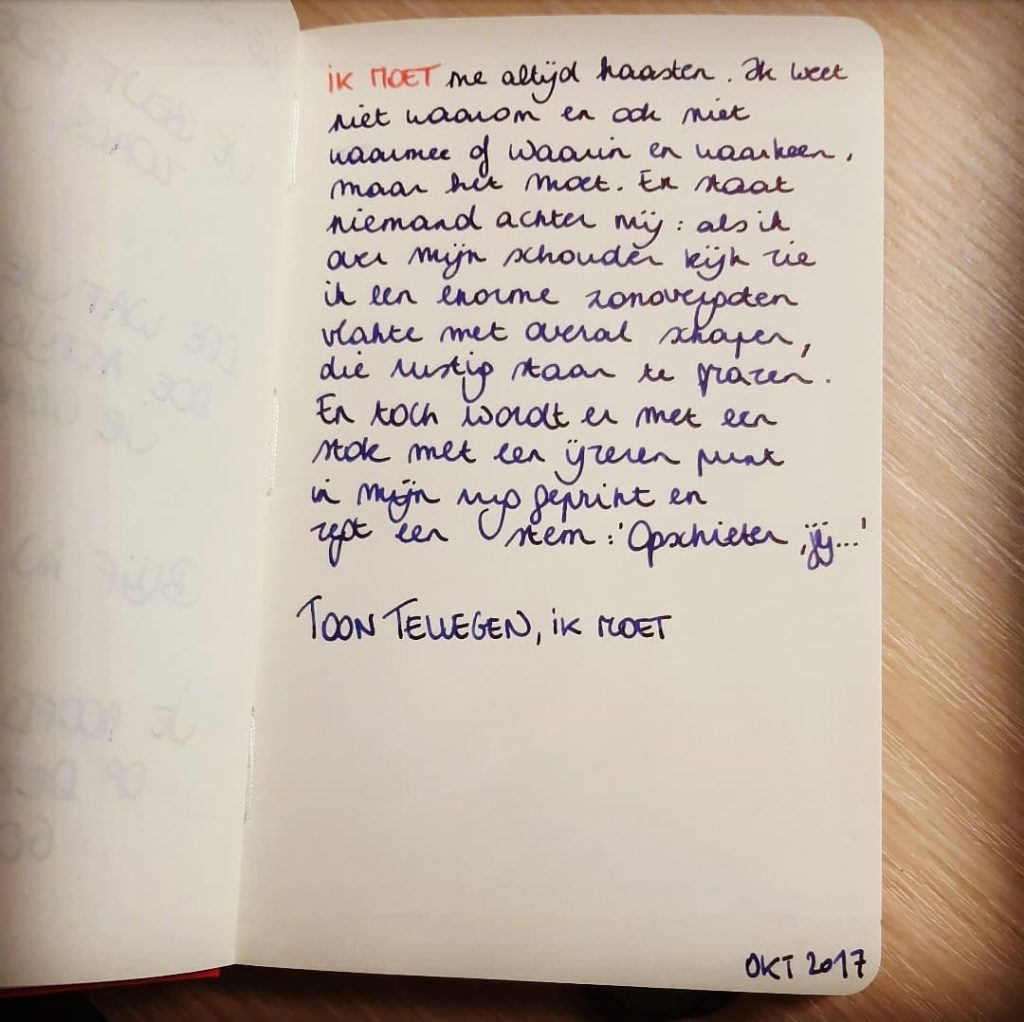 iK MOET me altijd haasten. Ik weet
niet waarom en ook niet
waarmee of waarin en waarheen,
maar het moet. Er staat
niemand achter mij: als ik
over mijn schouder kijk zie
ik een enorme zonovergoten
vlakte met overal schapen,
die rustig staan te grazen.
En toch wordt er met een
stok met een ijzeren punt
in mijn rug geprikt en
zegt een stem: 'Opschieten, jij...'
TOON TELLEGEN, iK MOET
OKT 2017